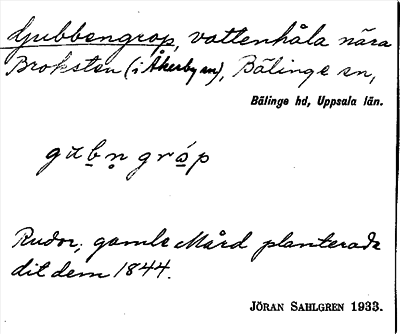 Gubbengrop, vattenhåla nära
Broksten (i Åkerby sn), Bälinge sn,
Bälinge hd, Uppsala län.
gub̲n̥ gró̲p
Rudor; gamle Mård planterade
dit dem 1844.
JÖRAN SAHLGREN 1933.